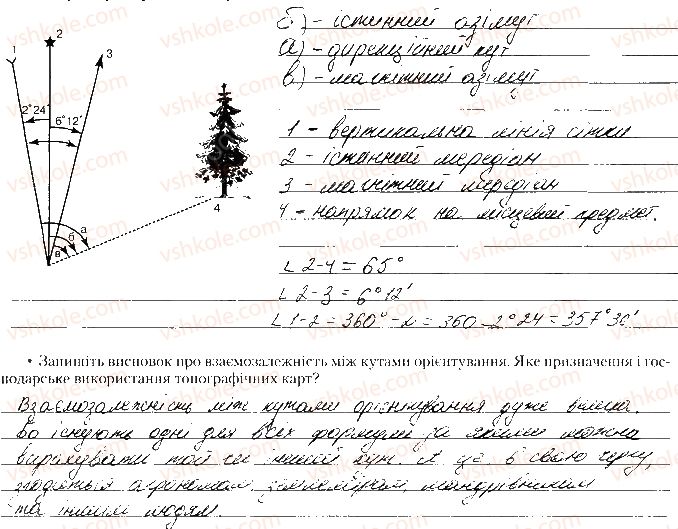 1
2
3
2°24'
6°12'
а
б
в
4
б) - істинний азімут
а) - дирекційний кут
в) - магнітний азімут
1 - вертикальна лінія сітки
2 - істинний меридіан
3 - магнітний меридіан
4 - напрямок на місцевий предмет.
∠ 2-4 = 65°
∠ 2-3 = 6°12'
∠ 1-2 = 360° - = 360 - 2°24 = 357°36'
• Запишіть висновок про взаємозалежність між кутами орієнтування. Яке призначення і гос-
подарське використання топографічних карт?
Взаємозалежність між кутами орієнтування дуже велика.
Бо існують одні для всіх формули за якими можна
вирахувати той чи інший кут. А це в свою чергу,
згодиться агрономам, землемірам, мандрівникам
та іншим людям.